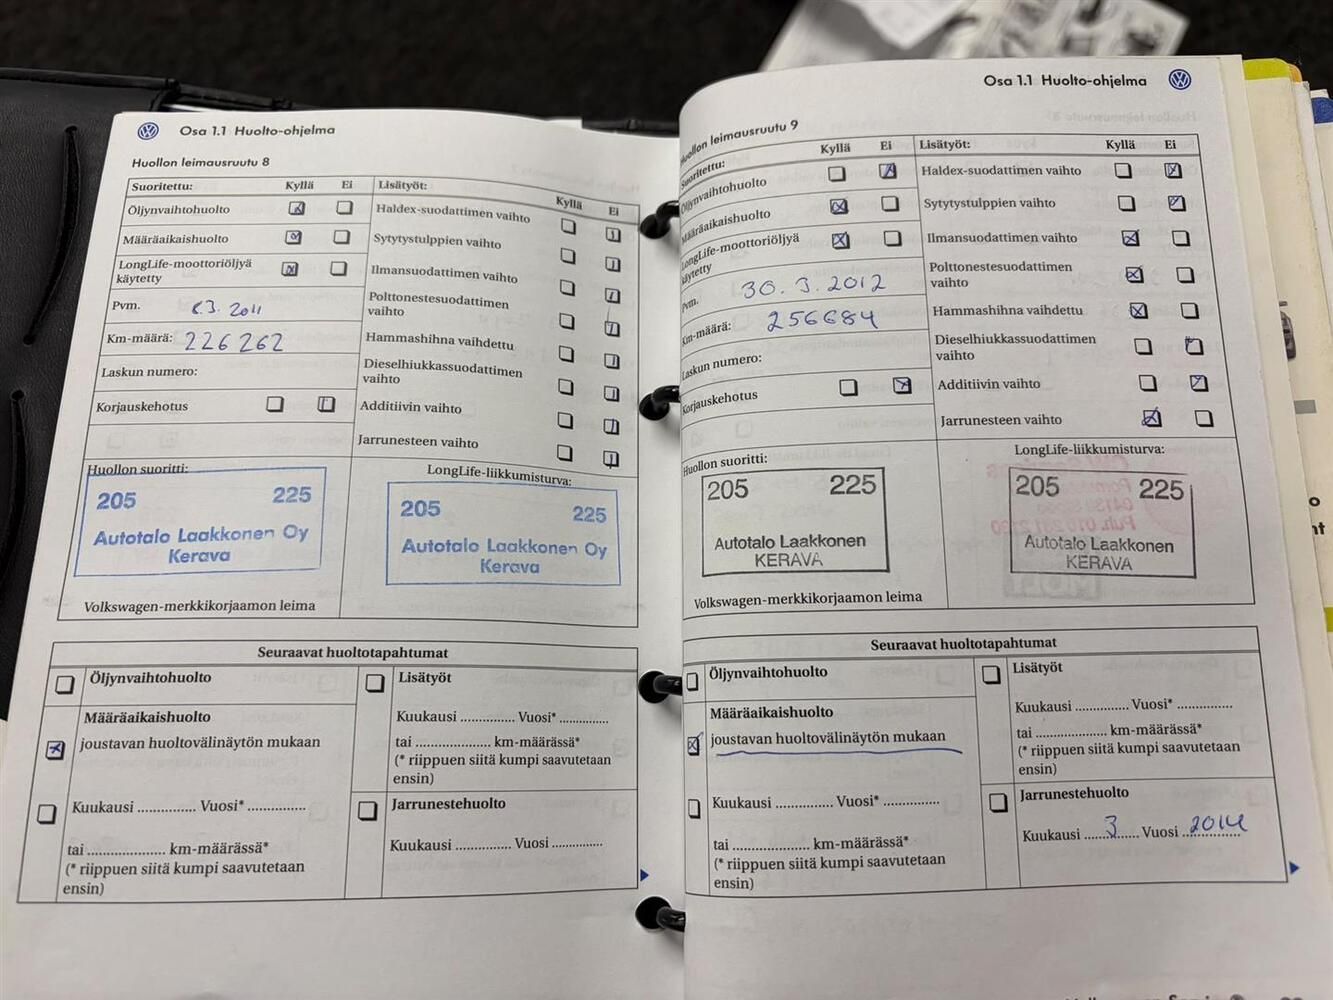 Osa 1.1 Huolto-ohjelma
Huollon leimausruutu 8
Suoritettu: Kyllä Ei
Öljynvaihtohuolto
Määräaikaishuolto
LongLife-moottoriöljyä
käytetty
Pvm. 8.3. 2011
Km-määrä: 226262
Laskun numero:
Korjauskehotus
Lisätyöt: Kyllä Ei
Haldex-suodattimen vaihto
Sytytystulppien vaihto
Ilmansuodattimen vaihto
Polttonestesuodattimen
vaihto
Hammashihna vaihdettu
Dieselhiukkassuodattimen
vaihto
Additiivin vaihto
Jarrunesteen vaihto
Huollon suoritti:
205 225
Autotalo Laakkonen Oy
Kerava
LongLife-liikkumisturva:
205 225
Autotalo Laakkonen Oy
Kerava
Volkswagen-merkkikorjaamon leima
Seuraavat huoltotapahtumat
Öljynvaihtohuolto
Määräaikaishuolto
joustavan huoltovälinäytön mukaan
Kuukausi .............. Vuosi* ..............
tai ..................... km-määrässä*
(* riippuen siitä kumpi saavutetaan
ensin)
Lisätyöt
Kuukausi .............. Vuosi* ............
tai ................... km-määrässä*
(* riippuen siitä kumpi saavutetaan
ensin)
Jarrunestehuolto
Kuukausi .............. Vuosi .............
Osa 1.1 Huolto-ohjelma
Huollon leimausruutu 9
Suoritettu: Kyllä Ei
Öljynvaihtohuolto
Määräaikaishuolto
LongLife-moottoriöljyä
käytetty
Pvm. 30.3.2012
Km-määrä: 256684
Laskun numero:
Korjauskehotus
Lisätyöt: Kyllä Ei
Haldex-suodattimen vaihto
Sytytystulppien vaihto
Ilmansuodattimen vaihto
Polttonestesuodattimen
vaihto
Hammashihna vaihdettu
Dieselhiukkassuodattimen
vaihto
Additiivin vaihto
Jarrunesteen vaihto
Huollon suoritti:
205 225
Autotalo Laakkonen
KERAVA
LongLife-liikkumisturva:
205 225
Autotalo Laakkonen
KERAVA
Volkswagen-merkkikorjaamon leima
Seuraavat huoltotapahtumat
Öljynvaihtohuolto
Määräaikaishuolto
joustavan huoltovälinäytön mukaan
Kuukausi .............. Vuosi* ..............
tai ..................... km-määrässä*
(* riippuen siitä kumpi saavutetaan
ensin)
Lisätyöt
Kuukausi .............. Vuosi* .............
tai ................... km-määrässä*
(* riippuen siitä kumpi saavutetaan
ensin)
Jarrunestehuolto
Kuukausi ...3... Vuosi 2014